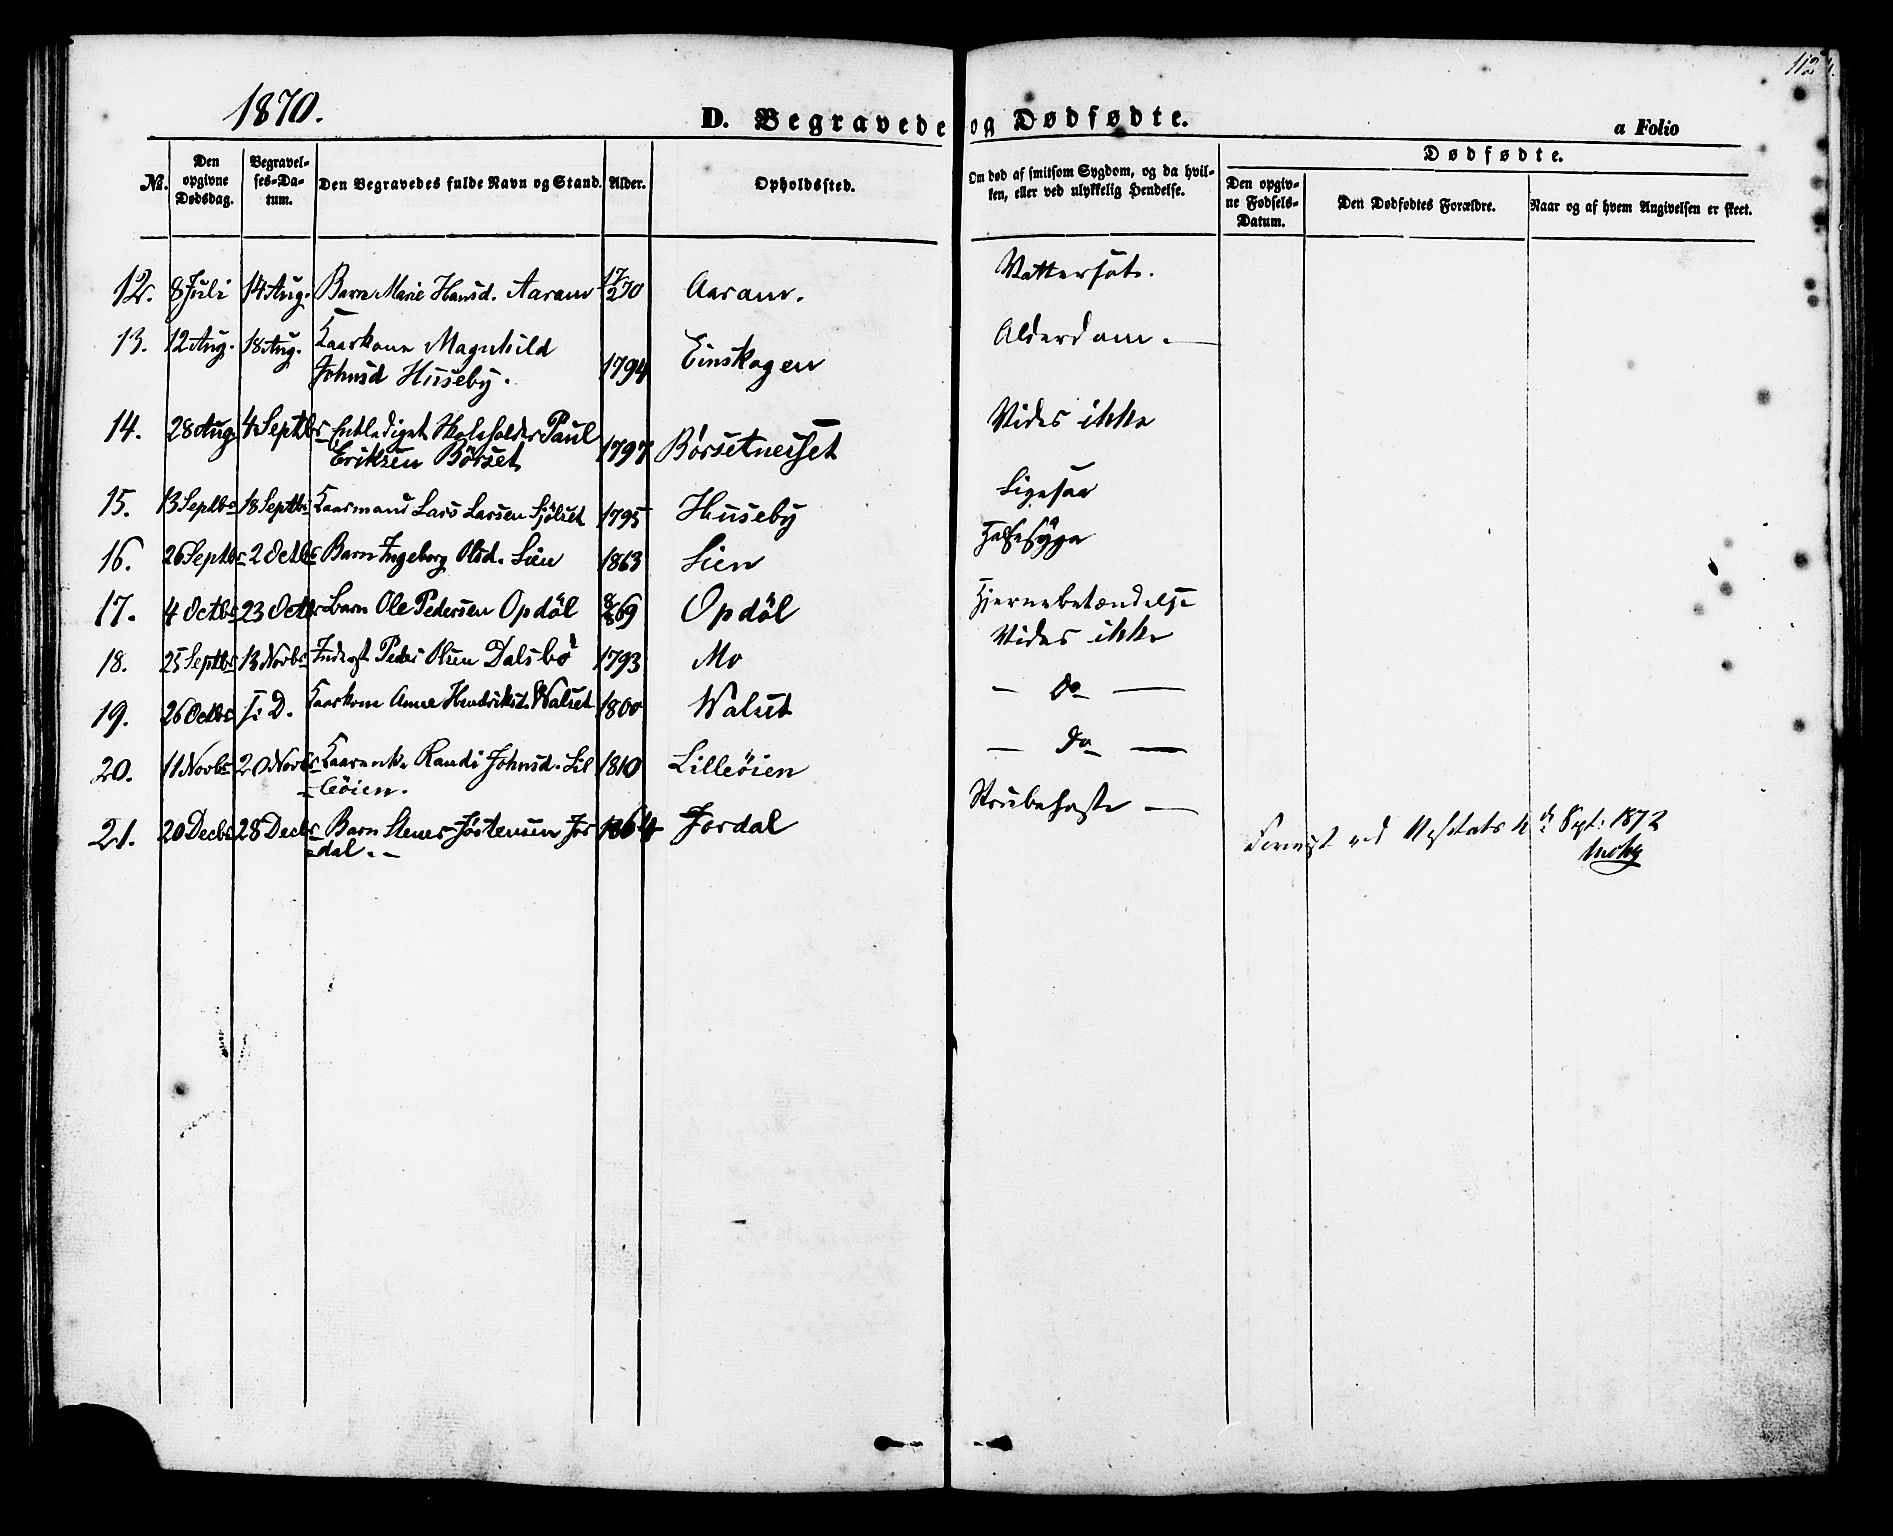 1870.
112
D. Begravede og Dødfødte.
a Folio
No.
Den opgivne Dødsdag.
Begravelses-Datum.
Den Begravedes fulde Navn og Stand.
Alder.
Opholdssted.
Om død af smitsom Sygdom, og da hvilken, eller ved ulykkelig Hendelse.
Dødfødte.
Den opgivne Fødsels-Datum.
Den Dødfødtes Forældre.
Naar og af hvem Angivelsen er skeet.
12. 8 Juli 14 Aug. Barn Marie Hansd. Aaram 17/2 70 Aaram. Vattersot.
13. 12 Aug. 18 Aug. Kaarkone Magnhild
Johnsd Huseby. 1794 Einskagen Alderdom.
14. 28 Aug. 4 Septbr Entlediget Skoleholder Paul
Eriksen Börset 1797 Børsetnesset Vides ikke
15. 13 Septbr 18 Septbr Kaarmand Lars Larsen Sjölset 1795 Huseby Ligesaa
16. 26 Septbr 2 Octbr Barn Ingeborg Olsd. Lien 1863 Lien Halsesyge
17. 4 Octbr 23 Octbr Barn Ole Pedersen Opdöl 69 Opdöl Hjernebetændelse
18. 25 Septbr 13 Novbr Inderst Peder Olsen Dalsbö 1793 Mo Vides ikke
19. 26 Octbr s. D. Kaarkone Anne Hendriksd. Walset 1800 Walset — do —
20. 11 Novbr 20 Novbr Kaarenke Randi Johnsd. Lil
leöien. 1810 Lilleöien — do —
21. 20 Decbr 28 Decbr Barn Stener Jostensen Jor
dal. 1864 Jordal Strubehoste —
ved Visitats d. Spt: 1872